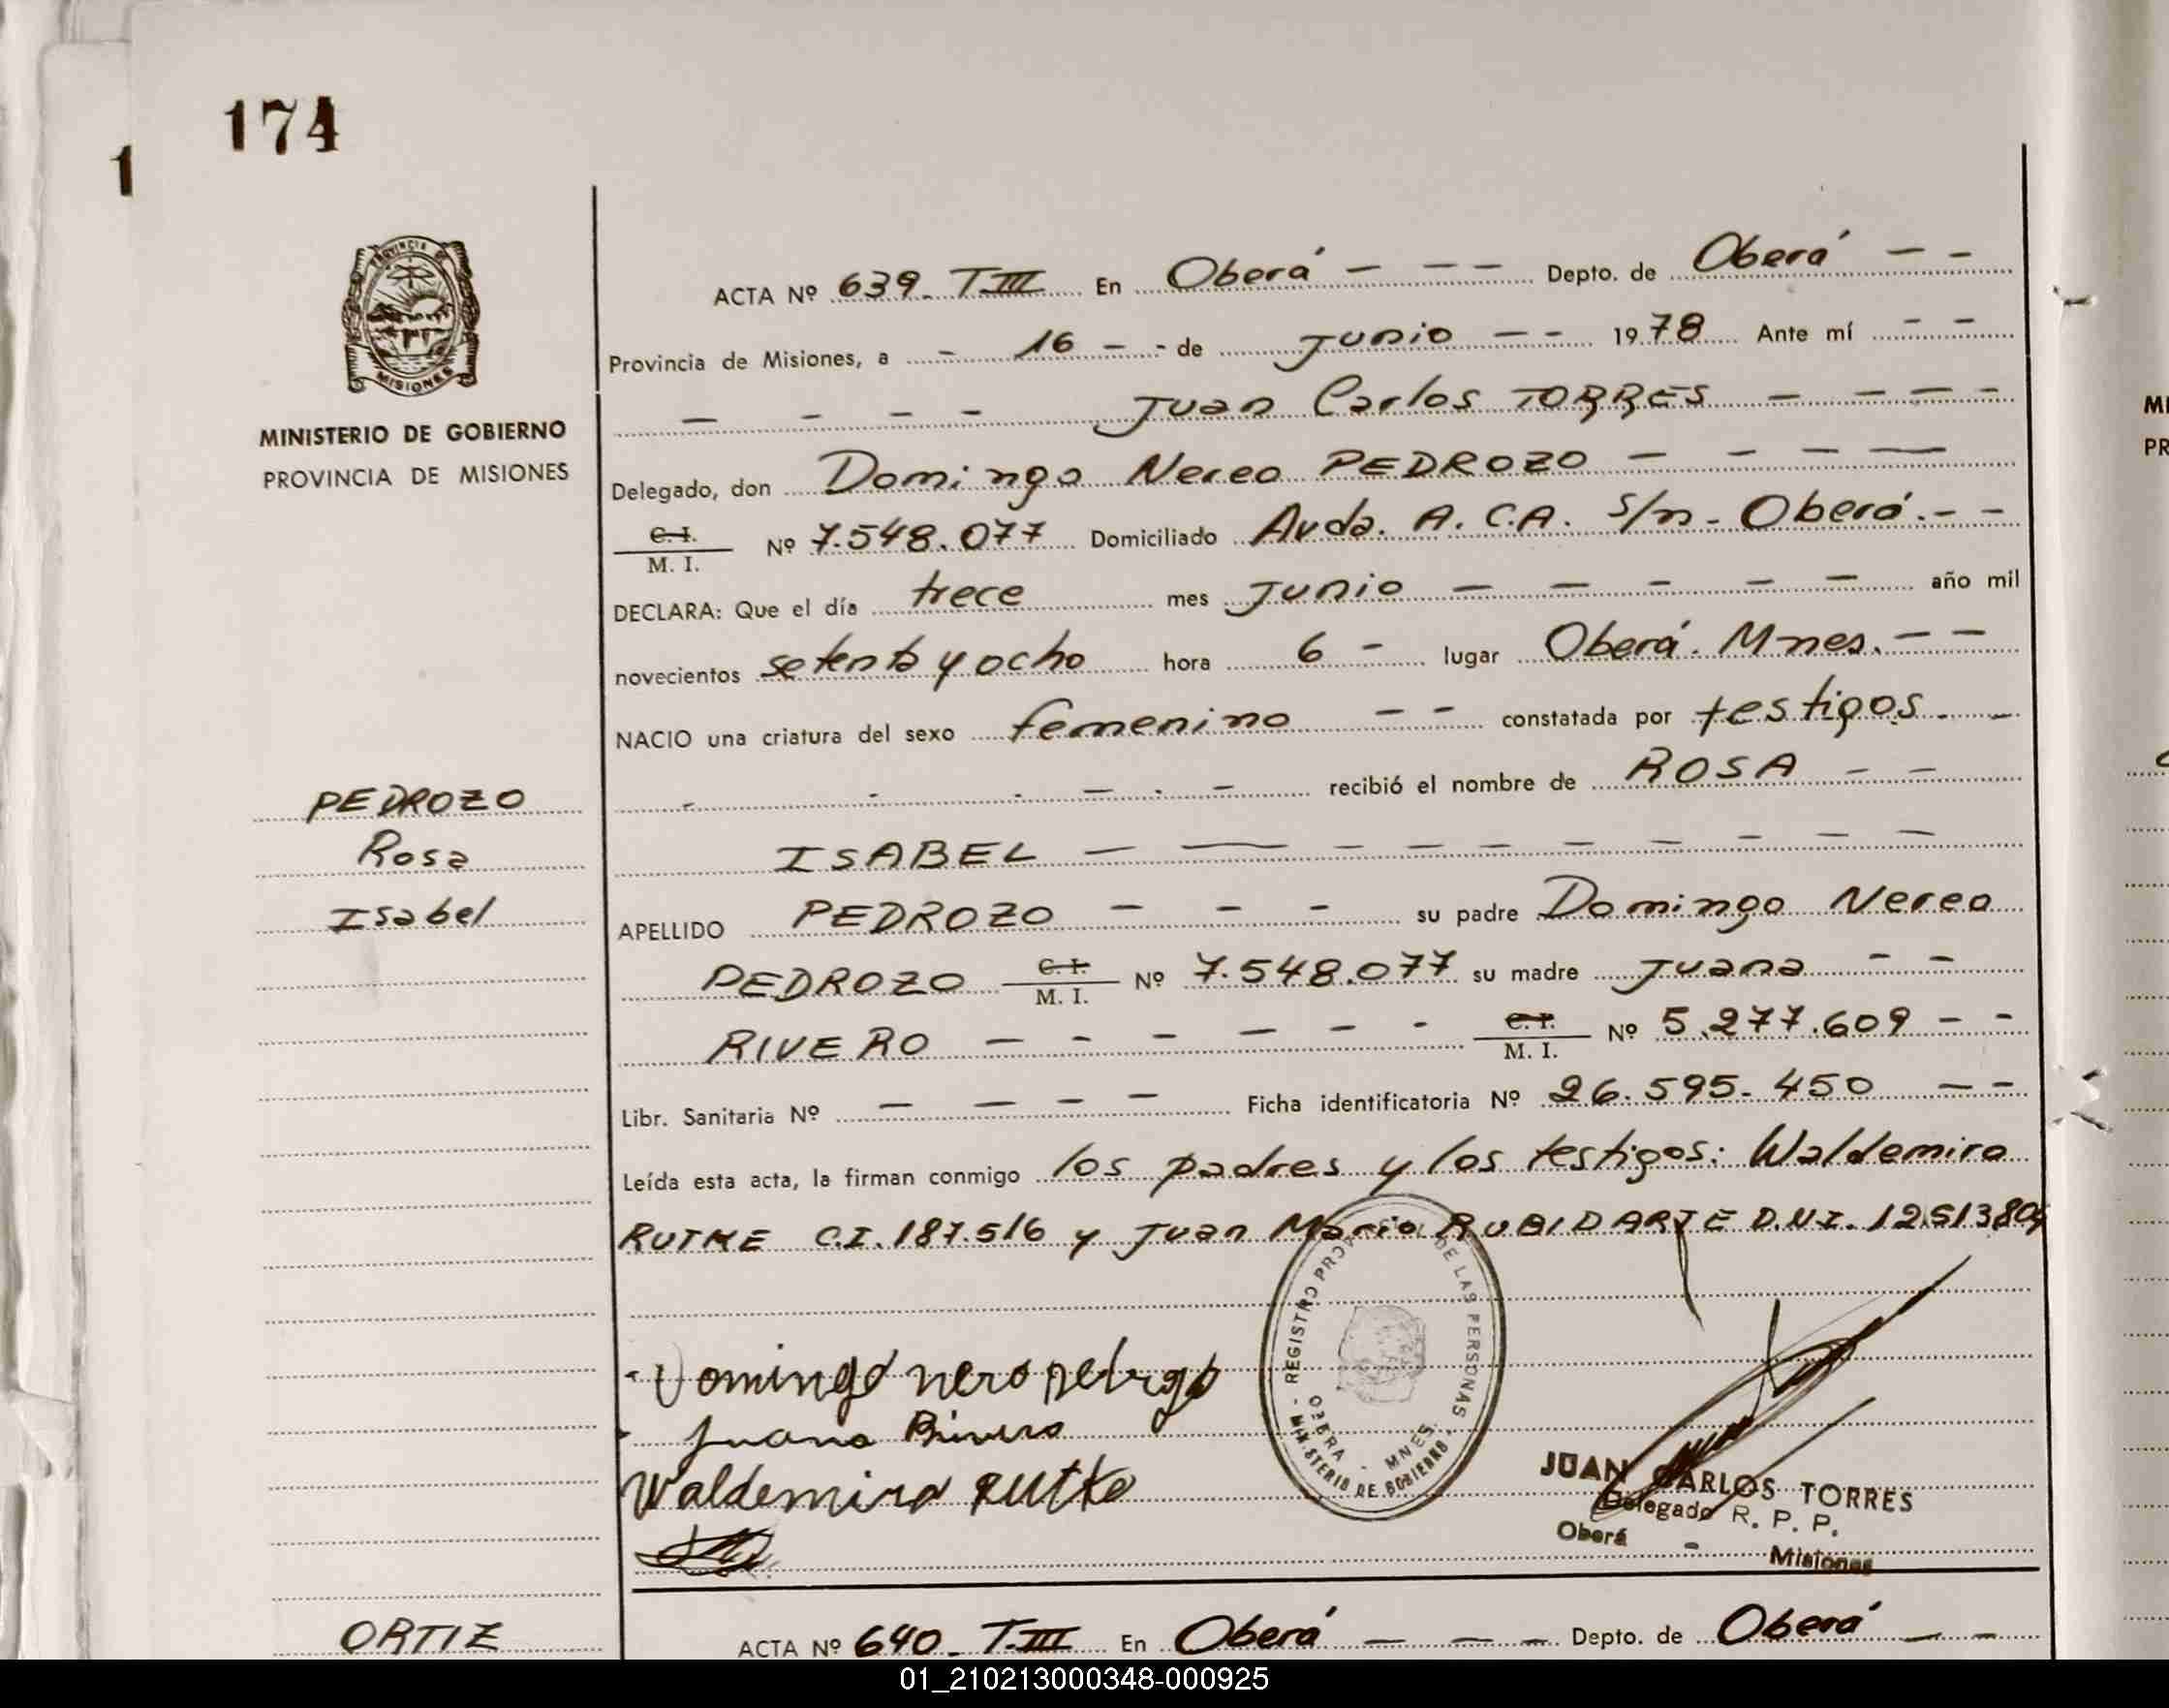 174
1
PROVINCIA DE
MISIONES
MINISTERIO DE GOBIERNO
PROVINCIA DE MISIONES
ACTA Nº 639_ T.III En Oberá — — — Depto. de Oberá — —
Provincia de Misiones, a - 16 - - de Junio — — 1978 Ante mí — —
— — — — Juan Carlos TORRES — — — —
Delegado, don Domingo Nereo PEDROZO — — — —
C.I.
M. I. Nº 7.548.077 Domiciliado Avda. A.C.A. s/n - Oberá. - -
DECLARA: Que el día trece mes Junio — — — — — año mil
novecientos setenta y ocho hora 6 - lugar Oberá. Mnes. — —
NACIO una criatura del sexo femenino — — constatada por testigos. —
- - - — - — recibió el nombre de ROSA — —
ISABEL — — — — — — — — —
APELLIDO PEDROZO — — — su padre Domingo Nereo
PEDROZO C.I.
M. I. Nº 7.548.077 su madre Juana — —
RIVERO — — — — — - C.I.
M. I. Nº 5.277.609 — -
Libr. Sanitaria Nº — — — — Ficha identificatoria Nº 26.595-450 — —
Leída esta acta, la firman conmigo los padres y los testigos: Waldemiro
RUTKE C.I. 187.516 y Juan Mario RUBIDARTE D.N.I. 12.513.804
PEDROZO
Rosa
Isabel
Domingo nero pedrozo
Juana Rivero
Waldemiro Rutke
REGISTRO PROV DE LAS PERSONAS
OBERA - MNES.
MINISTERIO DE GOBIERNO
JUAN CARLOS TORRES
Delegado R. P. P.
Oberá - Misiones
ORTIZ
ACTA Nº 640_ T.III En Oberá — — — Depto. de Oberá — —
MI
PR
01_210213000348-000925